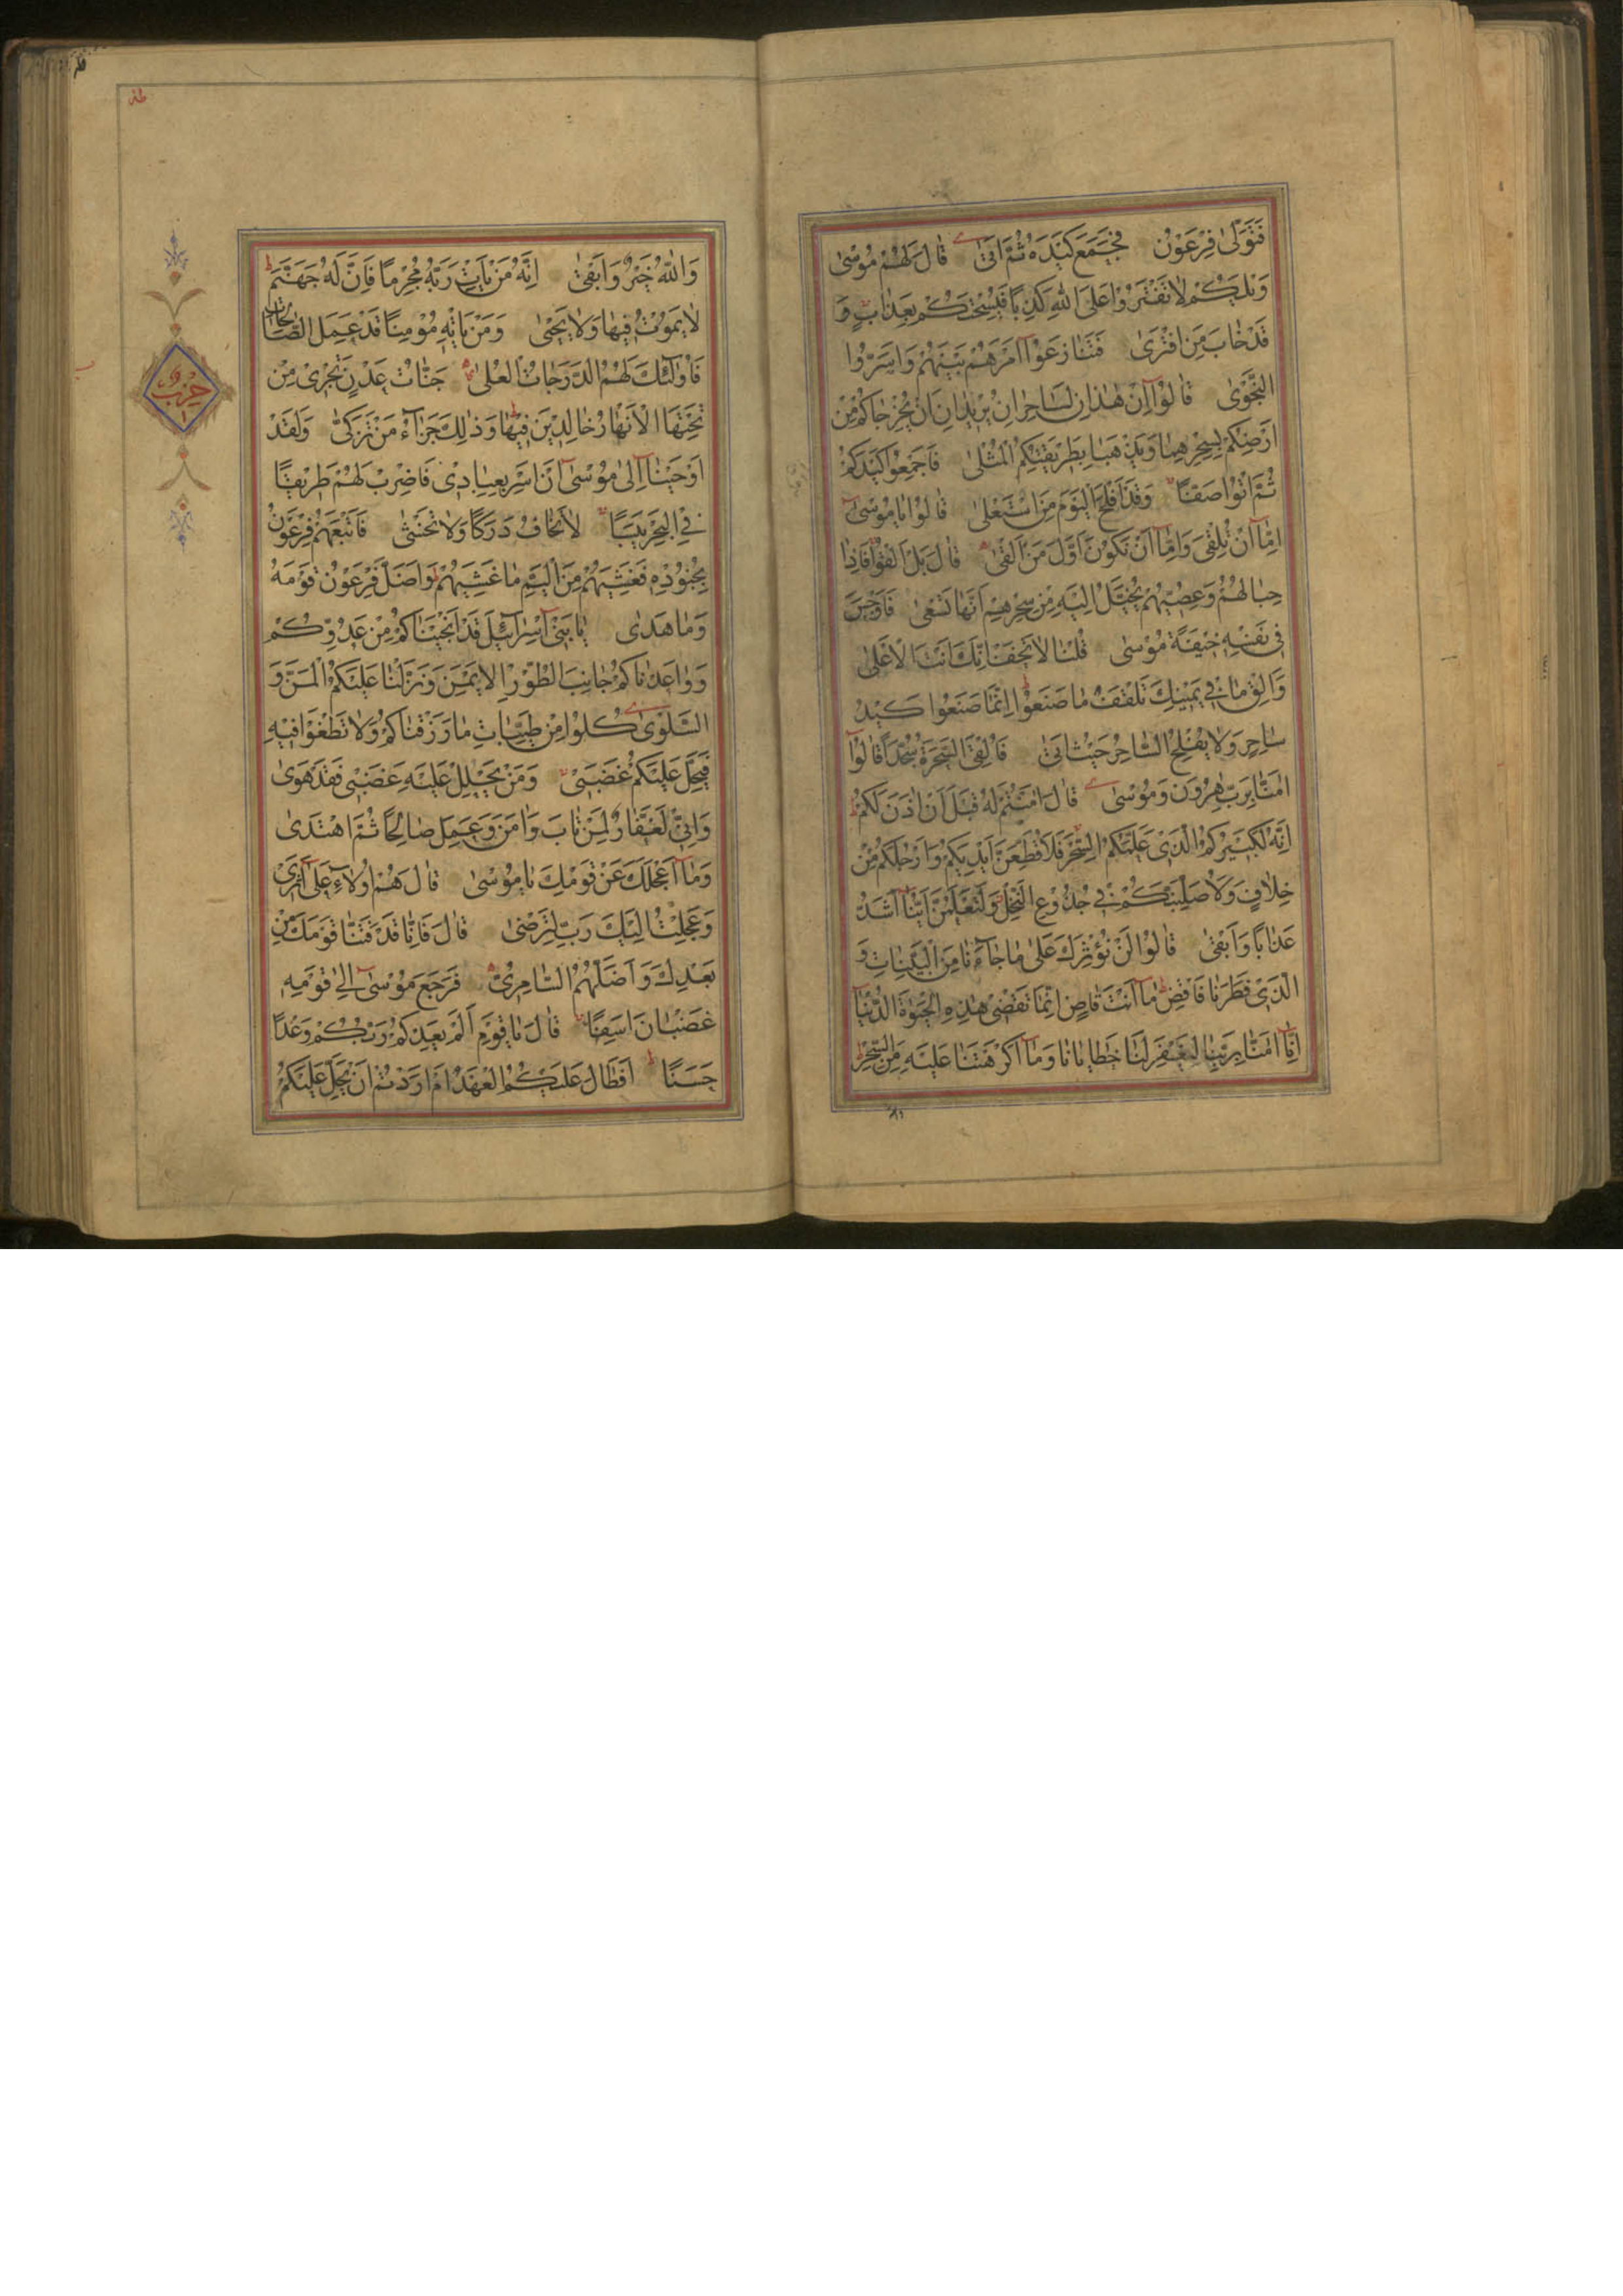 فَتَوَلّٰى فِرْعَوْنُ فَجَمَعَ كَيْدَهُ ثُمَّ اَتىٰ قٰالَ لَهُمْ مُوسٰى
وَيْلَكُمْ لاٰ تَفْتَرُوا عَلَى اللّٰهِ كَذِبًا فَيُسْحِتَكُمْ بِعَذٰابٍ وَ
قَدْ خٰابَ مَنِ افْتَرىٰ فَتَنٰازَعُوا اَمْرَهُمْ بَيْنَهُمْ وَاَسَرُّوا
النَّجْوىٰ قٰالُوا اِنْ هٰذٰانِ لَسٰاحِرٰانِ يُرِيدٰانِ اَنْ يُخْرِجٰاكُمْ مِنْ
اَرْضِكُمْ بِسِحْرِهِمٰا وَيَذْهَبٰا بِطَرِيقَتِكُمُ الْمُثْلىٰ فَاَجْمِعُوا كَيْدَكُمْ
ثُمَّ ائْتُوا صَفًّا وَقَدْ اَفْلَحَ الْيَوْمَ مَنِ اسْتَعْلىٰ قٰالُوا يٰا مُوسىٰ
اِمّٰا اَنْ تُلْقِىَ وَاِمّٰا اَنْ نَكُونَ اَوَّلَ مَنْ اَلْقىٰ قٰالَ بَلْ اَلْقُوا فَاِذٰا
حِبٰالُهُمْ وَعِصِيُّهُمْ يُخَيَّلُ اِلَيْهِ مِنْ سِحْرِهِمْ اَنَّهٰا تَسْعىٰ فَاَوْجَسَ
فِى نَفْسِهِ خِيفَةً مُوسىٰ قُلْنٰا لاٰ تَخَفْ اِنَّكَ اَنْتَ الْاَعْلىٰ
وَاَلْقِ مٰا فِى يَمِينِكَ تَلْقَفْ مٰا صَنَعُوا اِنَّمٰا صَنَعُوا كَيْدُ
سٰاحِرٍ وَلاٰ يُفْلِحُ السّٰاحِرُ حَيْثُ اَتىٰ فَاُلْقِىَ السَّحَرَةُ سُجَّدًا قٰالُوا
اٰمَنّٰا بِرَبِّ هٰرُونَ وَمُوسىٰ قٰالَ اٰمَنْتُمْ لَهُ قَبْلَ اَنْ اٰذَنَ لَكُمْ
اِنَّهُ لَكَبِيرُكُمُ الَّذِى عَلَّمَكُمُ السِّحْرَ فَلَاُقَطِّعَنَّ اَيْدِيَكُمْ وَاَرْجُلَكُمْ مِنْ
خِلاٰفٍ وَلَاُصَلِّبَنَّكُمْ فِى جُذُوعِ النَّخْلِ وَلَتَعْلَمُنَّ اَيُّنٰا اَشَدُّ
عَذٰابًا وَاَبْقىٰ قٰالُوا لَنْ نُؤْثِرَكَ عَلىٰ مٰا جٰاءَنٰا مِنَ الْبَيِّنٰاتِ وَ
الَّذِى فَطَرَنٰا فَاقْضِ مٰا اَنْتَ قٰاضٍ اِنَّمٰا تَقْضِى هٰذِهِ الْحَيٰوةَ الدُّنْيٰا
اِنّٰا اٰمَنّٰا بِرَبِّنٰا لِيَغْفِرَ لَنٰا خَطٰايٰانٰا وَمٰا اَكْرَهْتَنٰا عَلَيْهِ مِنَ السِّحْرِ
طه
وَاللّٰهُ خَيْرٌ وَاَبْقىٰ اِنَّهُ مَنْ يَاْتِ رَبَّهُ مُجْرِمًا فَاِنَّ لَهُ جَهَنَّمَ
لاٰ يَمُوتُ فِيهٰا وَلاٰ يَحْيىٰ وَمَنْ يَاْتِهِ مُؤْمِنًا قَدْ عَمِلَ الصّٰالِحٰاتِ
فَاُولٰئِكَ لَهُمُ الدَّرَجٰاتُ الْعُلىٰ جَنّٰاتُ عَدْنٍ تَجْرِى مِنْ
تَحْتِهَا الْاَنْهٰارُ خٰالِدِينَ فِيهٰا وَذٰلِكَ جَزٰاءُ مَنْ تَزَكّىٰ وَلَقَدْ
اَوْحَيْنٰا اِلىٰ مُوسىٰ اَنْ اَسْرِ بِعِبٰادِى فَاضْرِبْ لَهُمْ طَرِيقًا
فِى الْبَحْرِ يَبَسًا لاٰ تَخٰافُ دَرَكًا وَلاٰ تَخْشىٰ فَاَتْبَعَهُمْ فِرْعَوْنُ
بِجُنُودِهِ فَغَشِيَهُمْ مِنَ الْيَمِّ مٰا غَشِيَهُمْ وَاَضَلَّ فِرْعَوْنُ قَوْمَهُ
وَمٰا هَدىٰ يٰا بَنِى اِسْرٰائِيلَ قَدْ اَنْجَيْنٰاكُمْ مِنْ عَدُوِّكُمْ
وَوٰاعَدْنٰاكُمْ جٰانِبَ الطُّورِ الْاَيْمَنَ وَنَزَّلْنٰا عَلَيْكُمُ الْمَنَّ وَ
السَّلْوىٰ كُلُوا مِنْ طَيِّبٰاتِ مٰا رَزَقْنٰاكُمْ وَلاٰ تَطْغَوْا فِيهِ
فَيَحِلَّ عَلَيْكُمْ غَضَبِى وَمَنْ يَحْلِلْ عَلَيْهِ غَضَبِى فَقَدْ هَوىٰ
وَاِنِّى لَغَفّٰارٌ لِمَنْ تٰابَ وَاٰمَنَ وَعَمِلَ صٰالِحًا ثُمَّ اهْتَدىٰ
وَمٰا اَعْجَلَكَ عَنْ قَوْمِكَ يٰا مُوسىٰ قٰالَ هُمْ اُولاٰءِ عَلىٰ اَثَرِى
وَعَجِلْتُ اِلَيْكَ رَبِّ لِتَرْضىٰ قٰالَ فَاِنّٰا قَدْ فَتَنّٰا قَوْمَكَ مِنْ
بَعْدِكَ وَاَضَلَّهُمُ السّٰامِرِىُّ فَرَجَعَ مُوسىٰ اِلىٰ قَوْمِهِ
غَضْبٰانَ اَسِفًا قٰالَ يٰا قَوْمِ اَلَمْ يَعِدْكُمْ رَبُّكُمْ وَعْدًا
حَسَنًا اَفَطٰالَ عَلَيْكُمُ الْعَهْدُ اَمْ اَرَدْتُمْ اَنْ يَحِلَّ عَلَيْكُمْ
حزب